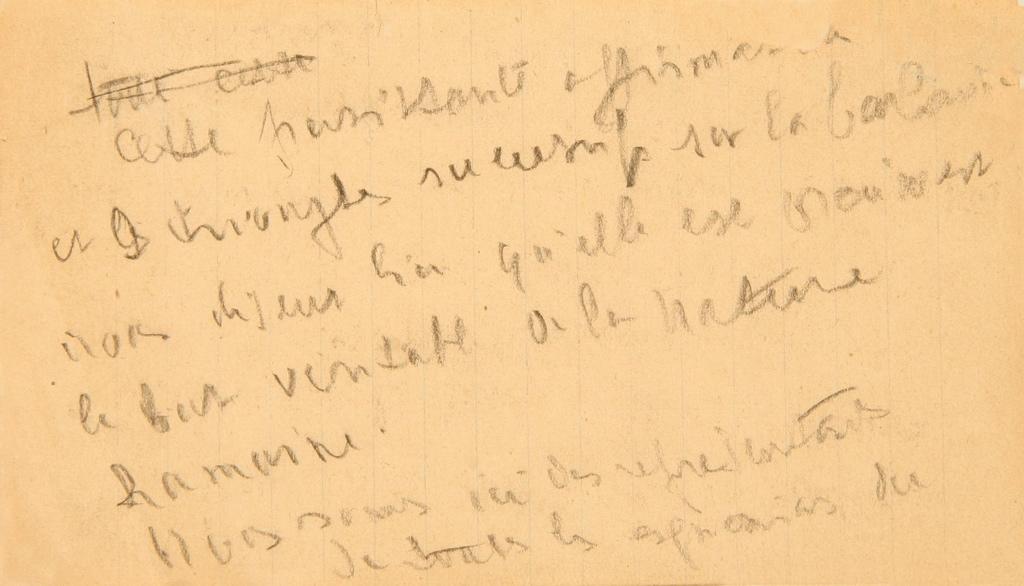 tout cette
Cette puissante affirmation
et le triomphe successif sur la barbarie
nous disent bien qu'elle est vraiment
le but véritable de la nature
humaine.
Nous sommes ici des représentants
de toutes les du